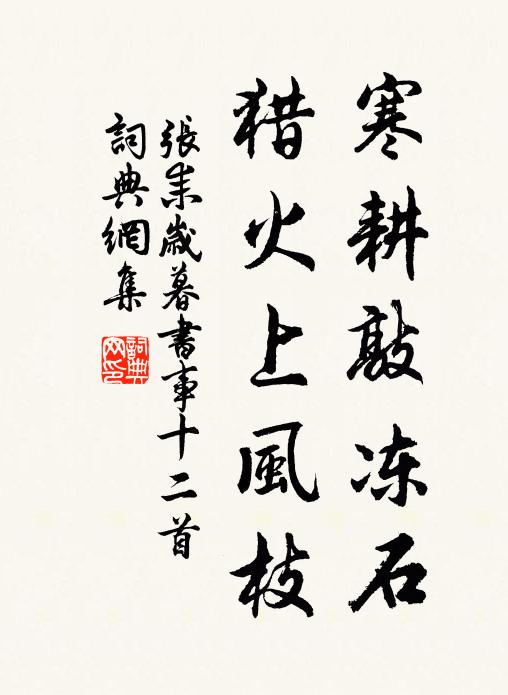 寒耕敲冻石
猎火上風枝
張耒歲暮書事十二首
詞典網集
詞典网印